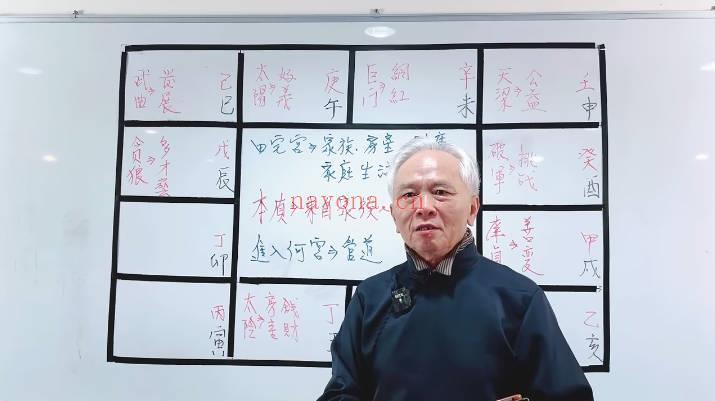 武曲⇒發展 己巳
太陽⇒好義 庚午
巨門⇒網紅 辛未
天梁⇒公益 壬申
貪狼⇒多才藝 戊辰
田宅宮⇒家族.房產
家庭生活
破軍⇒挑戰 癸酉
來自家族
nayona.cn
進入何宮⇒管道
丁卯
廉貞⇒善變 甲戌
丙寅
太陰⇒享善錢財 丁
乙亥